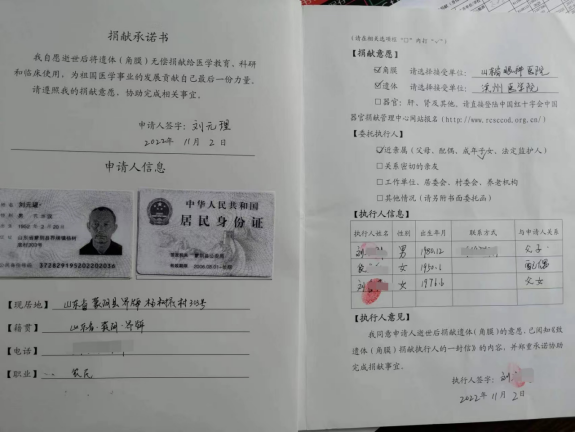 捐献承诺书
我自愿逝世后将遗体（角膜）无偿捐献给医学教育、科研
和临床使用，为祖国医学事业的发展贡献自己最后一份力量。
请遵照我的捐献意愿，协助完成相关事宜。
申请人签字：刘元理
2022年11月2日
申请人信息
中华人民共和国
居民身份证
【现居地】山东省蒙阴县
【籍贯】山东省·蒙阴·
【电话】
【职业】农民
（请在相关选项位“□”内打“✓”）
【捐献意愿】
☑角膜 请选择接受单位：山东眼科医院
☑遗体 请选择接受单位：滨州医学院
□器官：肝、肾及其他、请直接登陆中国红十字会中国
器官捐献管理中心网站报名（http://www.rcsccod.org.cn/）
【委托执行人】
☑近亲属（父母、配偶、成年子女、法定监护人）
□关系密切的亲友
□工作单位、居委会、村委会、养老机构
□其他情况（请另附书面委托函）
【执行人信息】
执行人姓名 性别 出生年月 联系方式 与申请人关系
刘 男 父子
女 配偶
刘 女 父女
【执行人意见】
我同意申请人逝世后捐献遗体（角膜）的意愿，已阅知《致
遗体（角膜）捐献执行人的一封信》的内容，并郑重承诺协助
完成捐献事宜。
执行人签字：刘
2022年11月2日